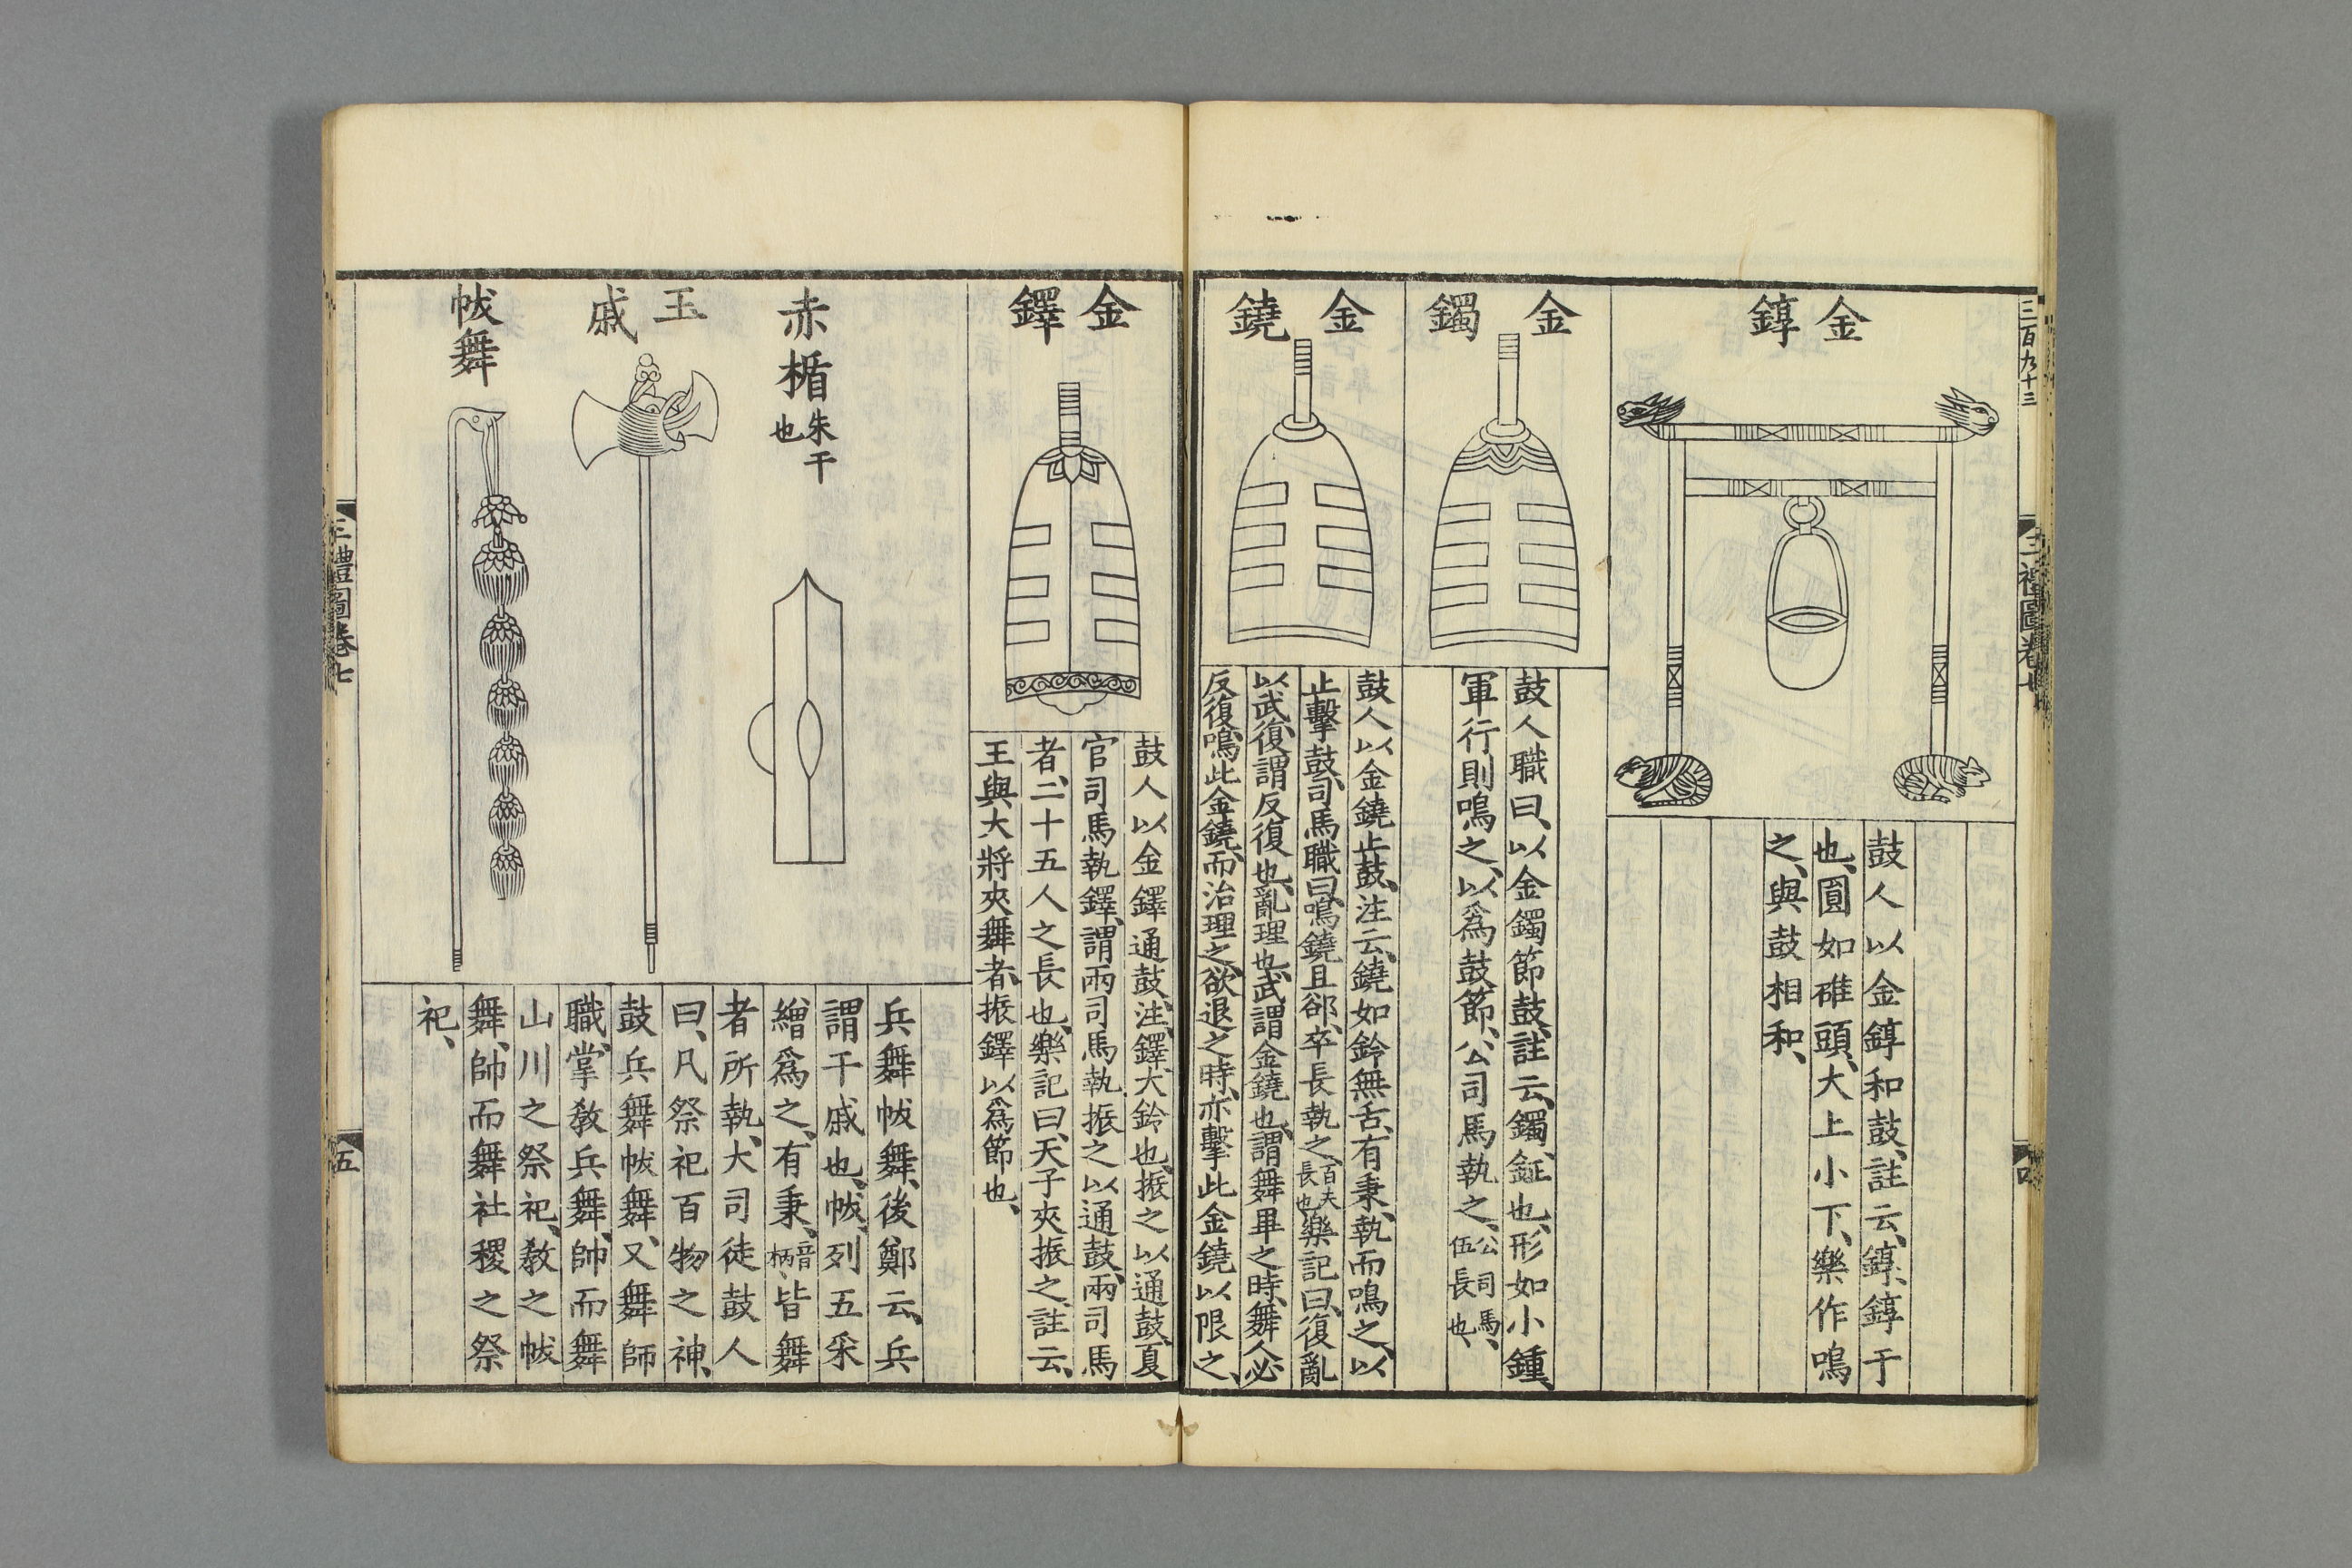 三百九十三
三禮圖卷七
四
金錞
鼓人以金錞和鼓、註云、錞、錞于
也、圓如碓頭、大上小下、樂作鳴
之、與鼓相和、
金鐲
鼓人職曰、以金鐲節鼓、註云、鐲、鉦也、形如小鍾、
軍行則鳴之、以爲鼓節、公司馬執之、公司馬、伍長也、
金鐃
鼓人以金鐃止鼓、注云、鐃如鈴無舌、有秉、執而鳴之、以
止擊鼓、司馬職曰、鳴鐃且郤、卒長執之、百夫長也、樂記曰、復亂
以武復、謂反復也、亂理也、武謂金鐃也、謂舞畢之時、舞人必
反復鳴此金鐃、而治理之、欲退之時、亦擊此金鐃以限之、
金鐸
鼓人以金鐸通鼓、注、鐸、大鈴也、振之以通鼓、夏
官司馬執鐸、謂兩司馬執振之以通鼓、兩司馬
者、二十五人之長也、樂記曰、天子夾振之、註云、
王與大將夾舞者、振鐸以爲節也、
赤楯朱干也
玉戚
帗舞
兵舞帗舞、後鄭云、兵
謂干戚也、帗、列五采
繒爲之、有秉、音柄、皆舞
者所執、大司徒鼓人
曰、凡祭祀百物之神、
鼓兵舞帗舞、又舞師
職、掌教兵舞、帥而舞
山川之祭祀、教之帗
舞、帥而舞社稷之祭
祀、
三禮圖卷七
五